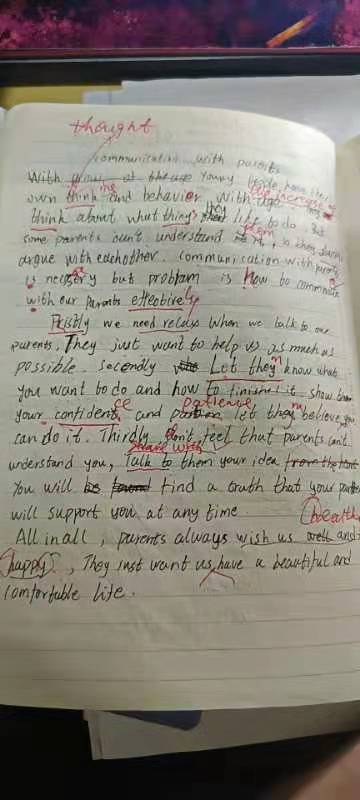 thought
communication with parents
With young people have their
own think and behavior with
the increase
think about what things like to do. But
some parents can't understand them, so they always
argue with eachother. communication with parents
is necessary but problem is how to communicate
with our parents effectively
Fristly we need relax when we talk to our
parents. They just want to help us as much as
possible. Secondly Let them know what
you want to do and how to finished it. show them
your confidence and patience let them believe you
can do it. Thirdly, don't feel that parents can't
share with
understand you, Talk to them your idea from the start
You will find a truth that your parents
will support you at any time.
healthy
All in all, parents always wish us well and
happy. They just want us have a beautiful and
comfortable life.